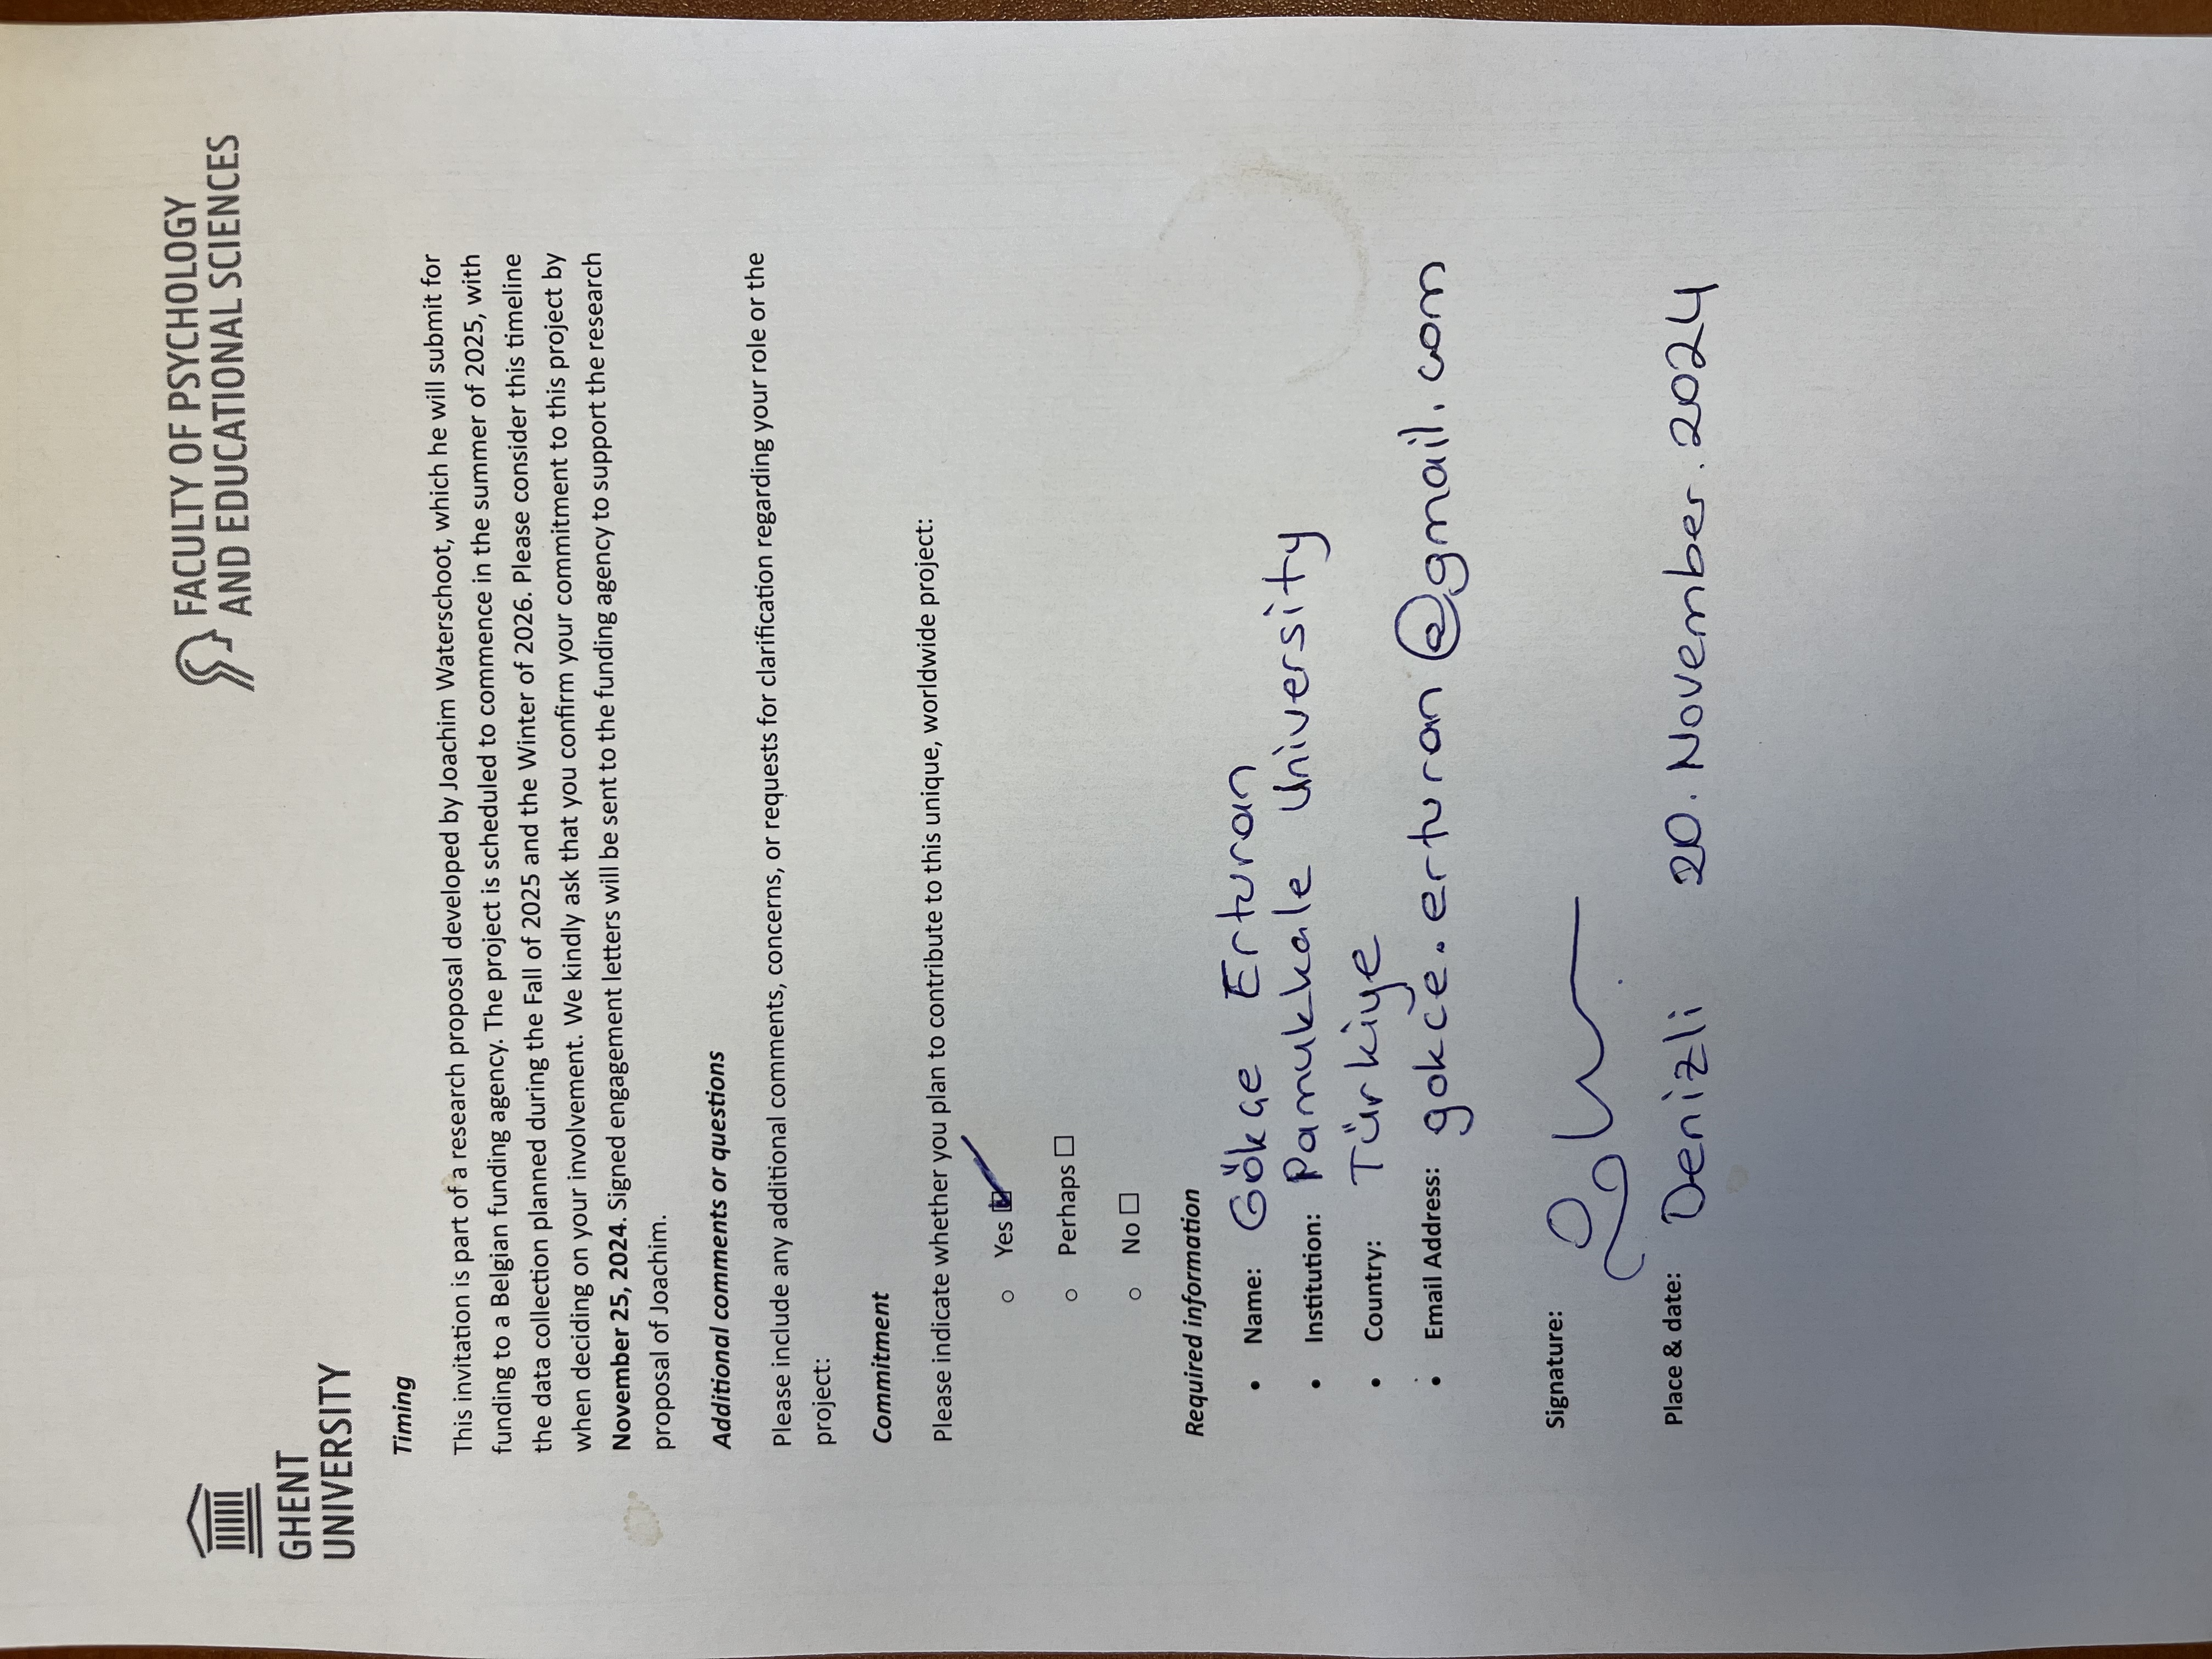 GHENT
UNIVERSITY
FACULTY OF PSYCHOLOGY
AND EDUCATIONAL SCIENCES
Timing
This invitation is part of a research proposal developed by Joachim Waterschoot, which he will submit for
funding to a Belgian funding agency. The project is scheduled to commence in the summer of 2025, with
the data collection planned during the Fall of 2025 and the Winter of 2026. Please consider this timeline
when deciding on your involvement. We kindly ask that you confirm your commitment to this project by
November 25, 2024. Signed engagement letters will be sent to the funding agency to support the research
proposal of Joachim.
Additional comments or questions
Please include any additional comments, concerns, or requests for clarification regarding your role or the
project:
Commitment
Please indicate whether you plan to contribute to this unique, worldwide project:
○ Yes ☑
○ Perhaps ☐
○ No ☐
Required information
• Name: Gökçe Erturan
• Institution: Pamukkale University
• Country: Türkiye
• Email Address: gokce.erturan@gmail.com
Signature:
Place & date: Denizli 20. November. 2024